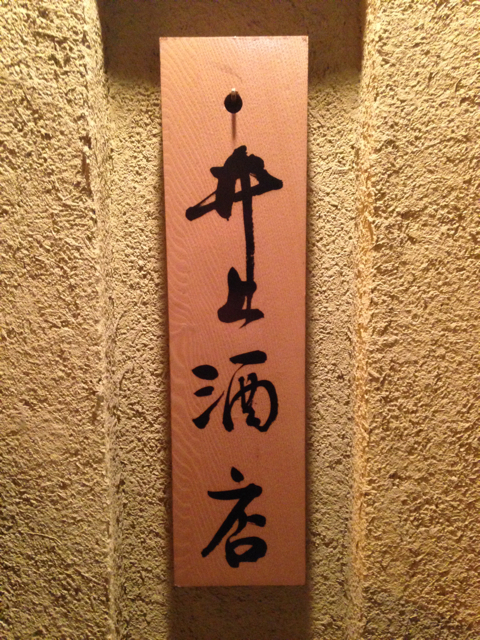 井上酒店